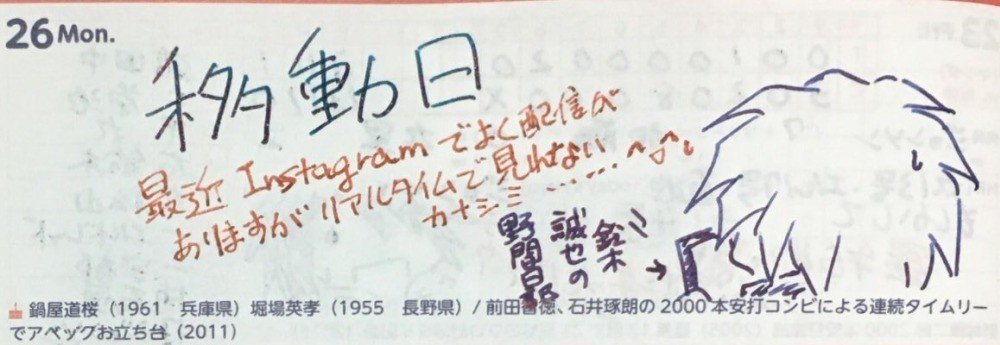 26 Mon.
移動日
最近Instagramでよく配信が
ありますがリアルタイムで見れない…
カナシミ……
鈴木
誠也の
野間口→
鍋屋道桜（1961　兵庫県）堀場英孝（1955　長野県）/ 前田智徳、石井琢朗の2000本安打コンビによる連続タイムリー
でアベックお立ち台（2011）